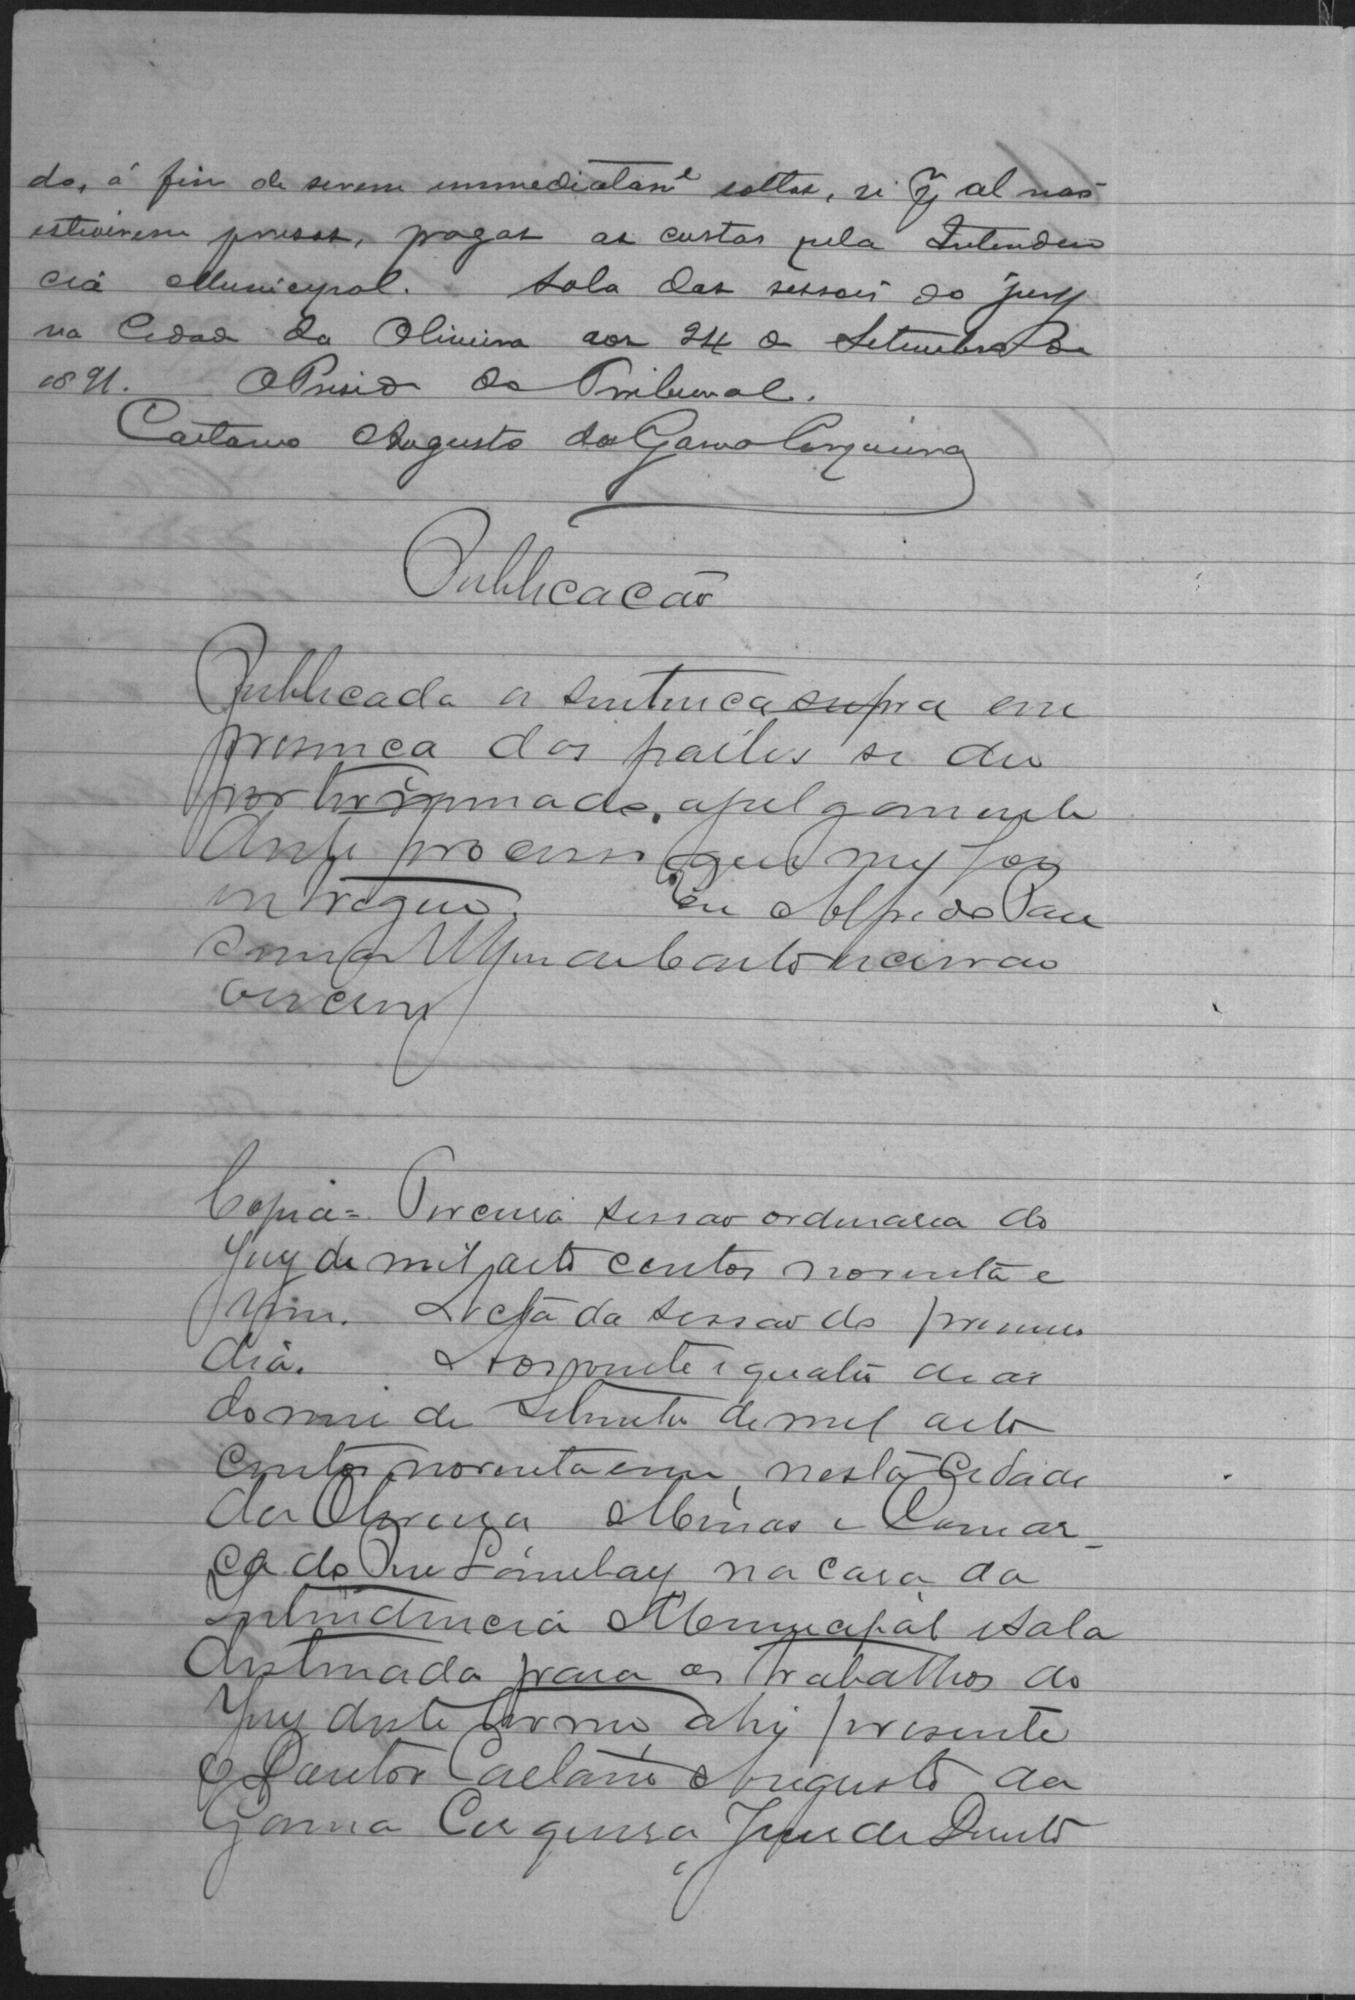 do, á fim de serem immediatamᵉ soltos, si p al não
estiverem presos, pagas as custas pela Intenden
cia Municipal. Sala das sessões do jury
na Cidade da Oliveira aos 24 de Setembro de
1891. O Presid do Tribunal.
Caetano Augusto da Gama Cerqueira
Publicação
Publicada a sentença supra em
presença das partes se deu
por terminado o julgamento
deste processo que me foi
entregue. Eu Alfredo
escrivão
escrevi
Copia = Terceira sessão ordinaria do
Jury de mil oito centos noventa e
um. Acta da sessão do primeiro
dia. Aos vinte e quatro dias
do mez de Setembro de mil oito
centos noventa e um, nesta Cidade
da Oliveira Minas e Comar-
ca do Rio Lambary na casa da
Intendencia Municipal e sala
destinada para os trabalhos do
Jury deste termo, ahi presente
o Doutor Caetano Augusto da
Gama Cerqueira, Juiz de Direito